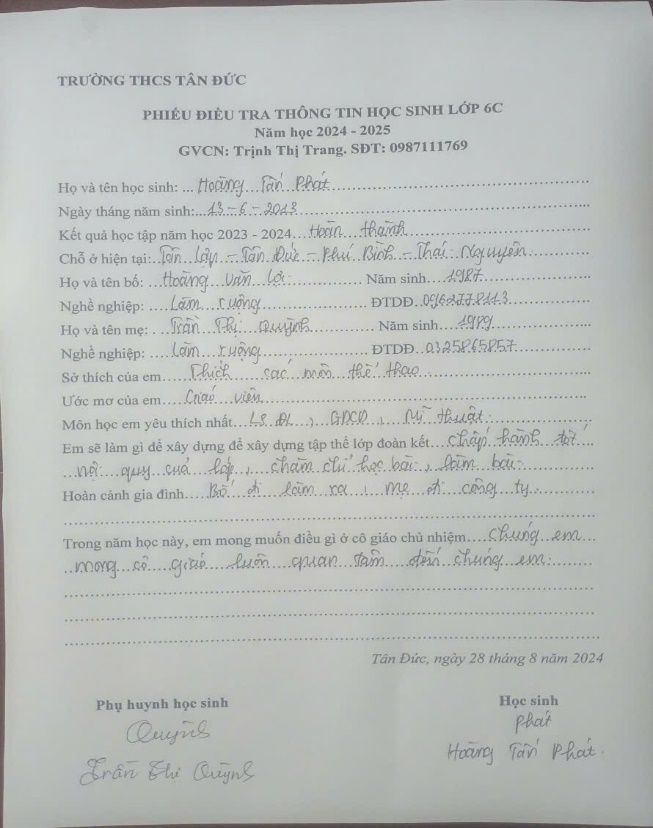 TRƯỜNG THCS TÂN ĐỨC
PHIẾU ĐIỀU TRA THÔNG TIN HỌC SINH LỚP 6C
Năm học 2024 - 2025
GVCN: Trịnh Thị Trang. SĐT: 0987111769
Họ và tên học sinh: ... Hoàng Tấn Phát
Ngày tháng năm sinh:...13-6-2013
Kết quả học tập năm học 2023 - 2024...Hoàn thành
Chỗ ở hiện tại:..Tân Lập - Tân Đức - Phú Bình - Thái Nguyên
Họ và tên bố: ...Hoàng Văn Lợi... Năm sinh....1987
Nghề nghiệp: ....Làm ruộng... ĐTDĐ..0962778113
Họ và tên mẹ: . ...Trần Thị Quỳnh... Năm sinh ...1989
Nghề nghiệp: ....Làm ruộng... ĐTDĐ..0325865857
Sở thích của em....Thích các môn thể thao
Ước mơ của em....Giáo viên
Môn học em yêu thích nhất..LS ĐL, GDCD, Mĩ thuật.
Em sẽ làm gì để xây dựng để xây dựng tập thể lớp đoàn kết...chấp hành tốt
nội quy của lớp, chăm chỉ học bài, làm bài.
Hoàn cảnh gia đình....Bố đi làm xa, mẹ đi công ty.
Trong năm học này, em mong muốn điều gì ở cô giáo chủ nhiệm....Chúng em
mong cô giáo luôn quan tâm đến chúng em.
Tân Đức, ngày 28 tháng 8 năm 2024
Phụ huynh học sinh
Học sinh
Quỳnh
Phát
Trần Thị Quỳnh
Hoàng Tấn Phát.